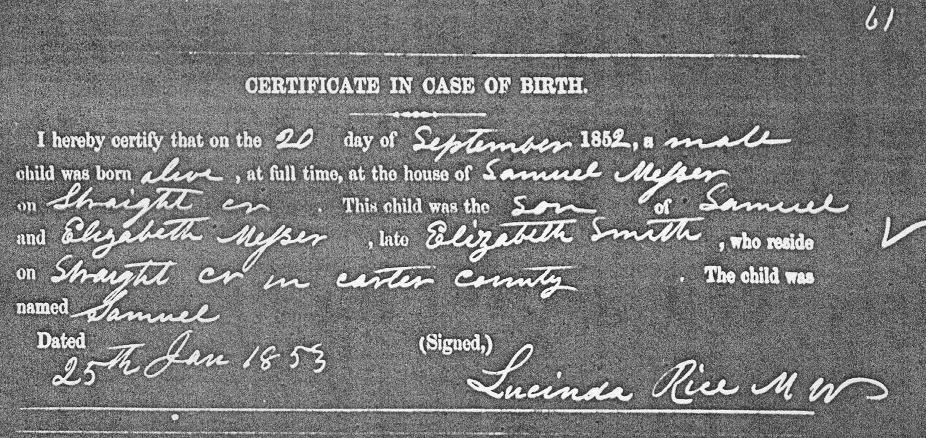 61
CERTIFICATE IN CASE OF BIRTH.
I hereby certify that on the 20 day of September 1852, a male
child was born alive, at full time, at the house of Samuel Meſser
on Straight cr. This child was the son of Samuel
and Elizabeth Meſser, late Elizabeth Smith, who reside
on Straight cr in carter county. The child was
named Samuel
Dated (Signed,)
25th Jan 1853
Lucinda Rice M W